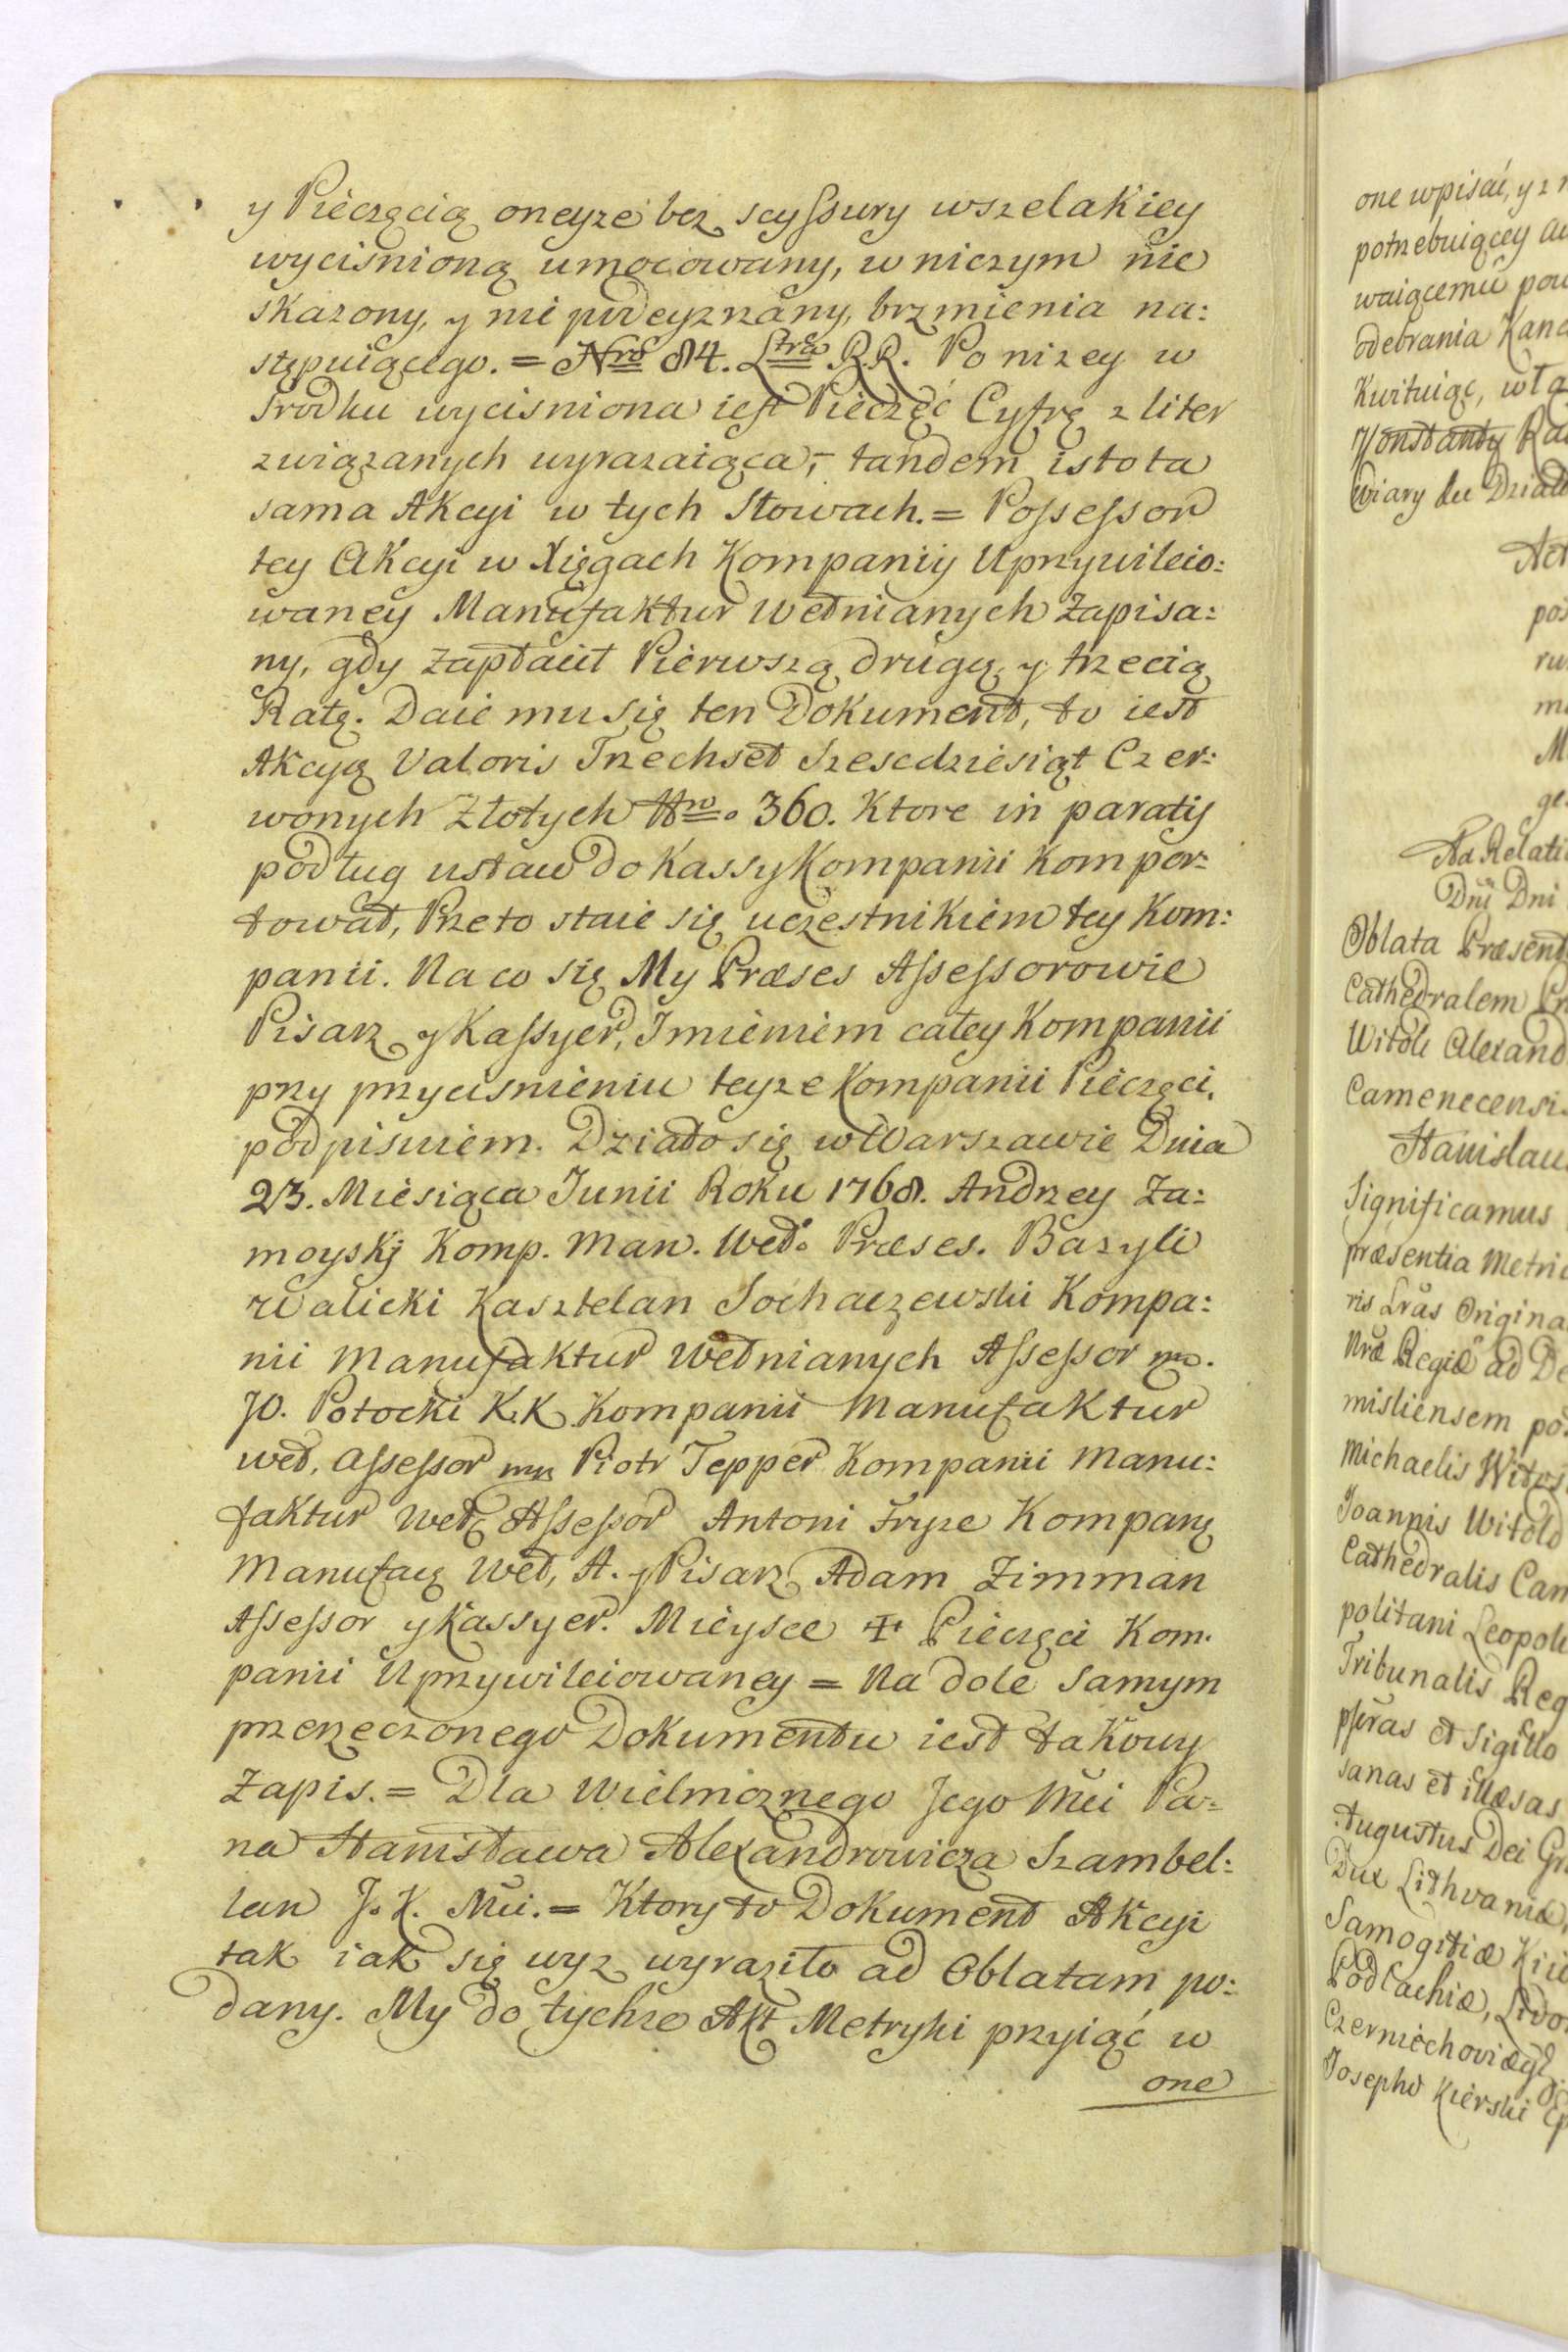 y Pieczęcią oneyże bez scyssury wszelakiey
wyciśnioną umocowany, w niczym nie
skazony, y nie podeyzrzany, brzmienia na:
stępuiącego. = Nro 84. Ltra R.R. Ponizey w
srodku wycisniona iest Pieczęć Cyfrę z liter
związanych wyrazaiąca, tandem istota
sama Akcyi w tych Słowach. = Possessor
tey Akcyi w Xięgach Kompanii Uprzywileio:
waney Manufaktur Wełnianych Zapisa:
ny, gdy Zapłacił Pierwszą, drugą, y trzecią
Ratę. Daie mu się ten Dokument, to iest
Akcyą Valoris Trzechset Szescdziesiąt Czer:
wonych Złotych Nro. 360. Ktore in paratis
podług ustaw do Kassy Kompanii kompor:
tował, Przeto staie się uczestnikiem tey Kom:
panii. Na co się My Præses Assessorowie
Pisarz y Kassyer, Imieniem całey Kompanii
przy przycisnieniu teyze Kompanii Pieczęci,
podpisuiem. Działo się w Warszawie Dnia
23. Miesiąca Junii Roku 1768. Andrzey Za:
moyski Komp. Man. Weł. Præses. Bazyli
Walicki Kasztelan Sochaczewski Kompa:
nii Manufaktur Wełnianych Assessor mp.
Potocki K.K. Kompanii Manufaktur
weł. Assessor mp Piotr Tepper Kompanii Manu:
faktur Weł. Assessor Antoni Fryze Kompany
Manufacy Weł, A. y Pisarz Adam Zimman
Assessor y Kassyer. Mieysce ✠ Pieczęci Kom.
panii Uprzywileiowaney = Na dole samym
przerzeczonego Dokumentu iest takowy
Zapis. = Dla Wielmoznego Jego Mci Pa:
na Stanisława Alexandrowicza Szambel:
lan J. K. Mci. = Ktory to Dokument Akcyi
tak iak się wyz wyraziło ad Oblatam po:
dany. My do tychze Akt Metryki przyiąć w
one
one wpisać, y z
potrzebuiącey
waiącemu
odebrania
Kwituiąc,
Konstanty
Wiary
Ad Relati
Dni Dni
Oblata Præsent
Cathedralem
Witole Alexand
Camenecensi
Stanislaus
Significamus
præsentia Metric
ris Lras Origina
Nræ Regiæ ad De
misliensem
Michaelis
Joannis Witold
Cathedralis Cam
politani Leopol
Tribunalis Reg
et Sigillo
sanas et illæsas
Augustus Dei Gr
Dux Lithvaniæ,
Samogitiæ Kii
Podlachiæ, Livo
Czerniechoviæ
Josepho Kierski Ep